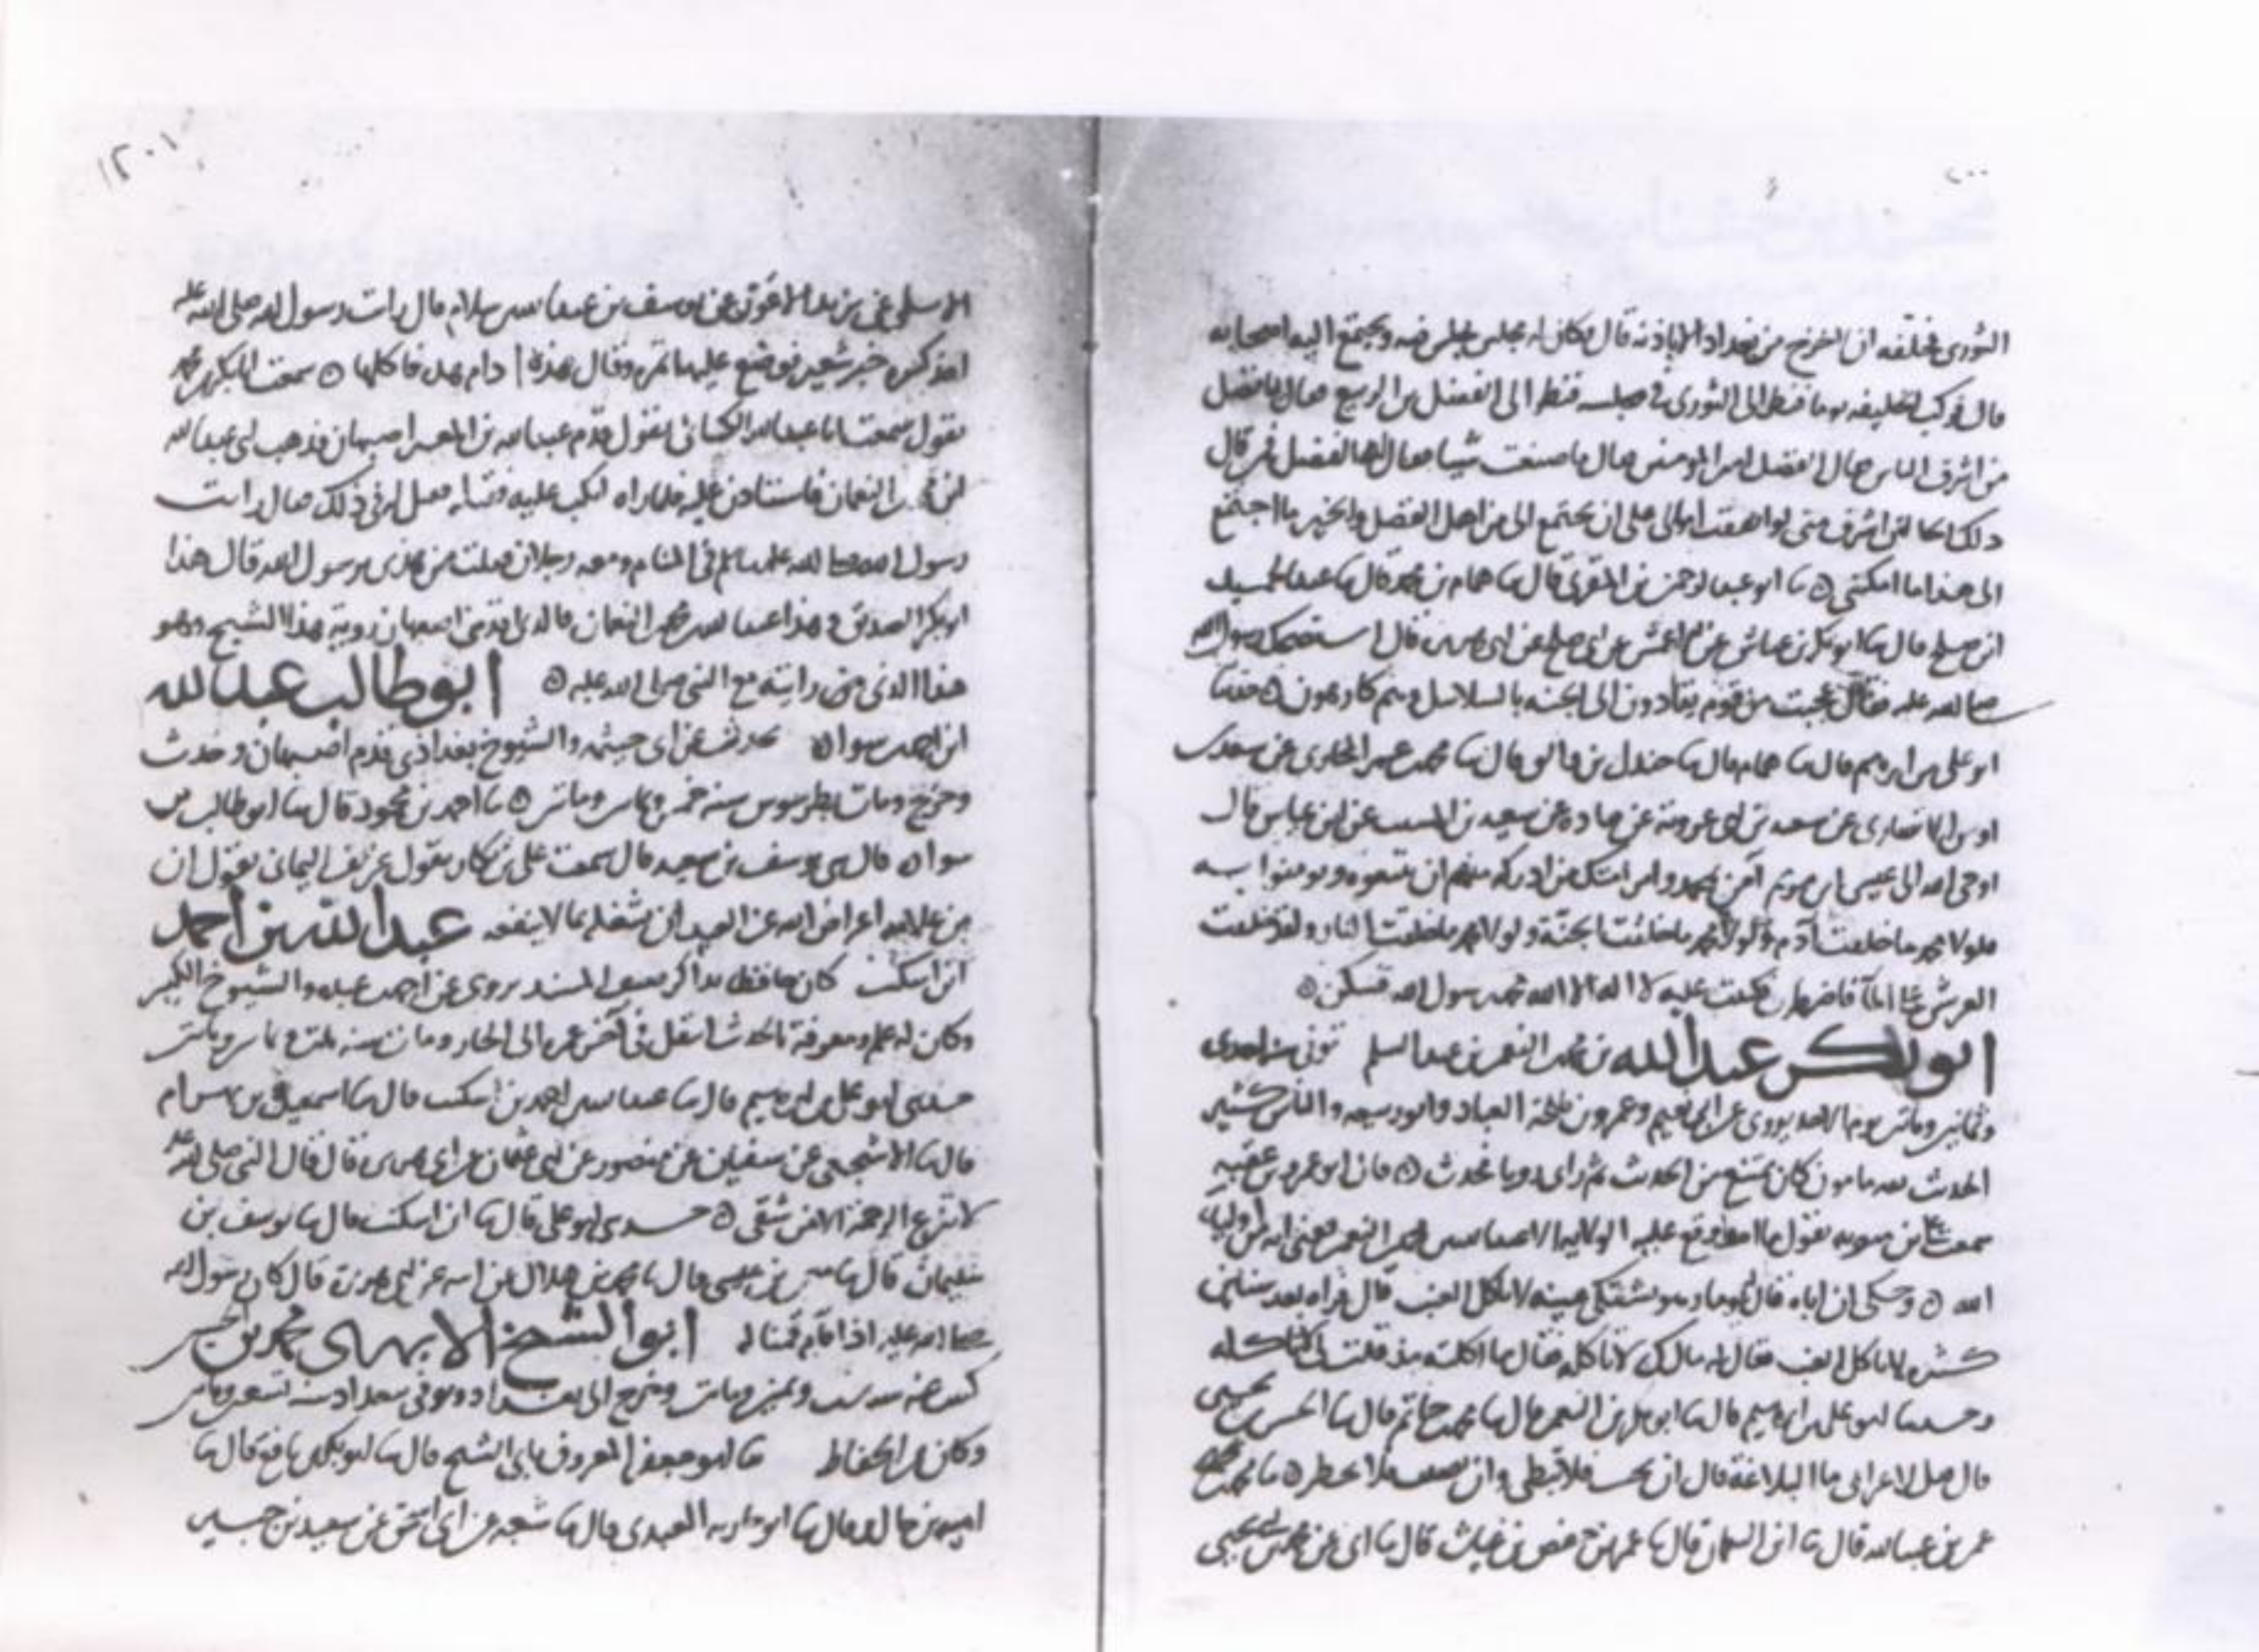 ٢٠٠
الثورى فحلفه ان لا يخرج من بغداد الا باذنه قال وكان له مجلس يجلس فيه ويجتمع اليه اصحابه
قال فركب الخليفه يوما فنظر الى الثورى فى مجلسه فنظر الى الفضل بن الربيع فقال يا فضل
من اشرف الناس فقال الفضل امير المومنين فقال ما صنعت شيا فقال الفضل فمن قال
ذلك انما لمن اشرف منى لو انفقت اموالى على ان يجتمع الى من اهل الفضل والخير ما اجتمع
الى هذا ما امكننى ٥ ثنا ابو عبد الرحمن بن المقرى قال ثنا همام بن محمد قال ثنا عبد الحميد
ابن صالح قال ثنا ابو بكر بن عياش عن الاعمش عن ابى صالح عن ابى هريره قال استضحك رسول الله
صلى الله عليه فقال عجبت من قوم يقادون الى الجنه بالسلاسل وهم كارهون ٥ حدثنا
ابو على بن ابرهيم قال ثنا همام قال ثنا جندل بن والق قال ثنا محمد بن عمر المحاربى عن سعيد بن
اوس الانصارى عن سعيد بن ابى عروبة عن قتاده عن سعيد بن المسيب عن ابن عباس قال
اوحى الله الى عيسى ابن مريم آمن بمحمد وامر امتك من ادركه منهم ان يتبعوه ويومنوا به
فلولا محمد ما خلقت آدم ولولا محمد ما خلقت الجنة ولولا محمد ما خلقت النار ولقد خلقت
العرش على الماء فاضطرب فكتبت عليه لا اله الا الله محمد رسول الله فسكن ٥
ابو بكر عبد الله بن محمد بن النعمن بن عبد السلم توفى سنه احدى
وثمانين ومائتين يروى عن ابى نعيم وعمرو بن طلحة القناد وابو ربيعه والناس كثير
الحديث ثقه مامون كان يمتنع من الحديث ثم راى رويا فحدث ٥
سمعت يقول عليه الا عبد الله بن محمد بن النعمن يعنى انه من اوليا
الله ٥ وحكى ان اباه قال يوما وهو يشتكى عينه لا تاكل العنب قال فراه بعد سنين
كثيره لا ياكل العنب فقال له مالك لا تاكله فقال ما اكلته مذ قلت لى لا تاكله
وحدثنا ابو على بن ابرهيم قال ثنا ابو بكر بن النعمن قال ثنا محمد بن حاتم قال ثنا الحسن بن يحيى
قال قيل لاعرابى ما البلاغة قال ان تجيب فلا تبطى وان تصيب فلا تخطى ٥ ثنا محمد بن
عمر بن عبد الله قال ثنا ابن النعمان قال ثنا عمر بن حفص بن غياث قال ثنا ابى عن محمد بن ابى يحيى
٢٠١
الاسلمى عن يزيد الاعور عن يوسف بن عبد الله بن سلام قال رايت رسول الله صلى الله عليه
اخذ كسرة خبز شعير فوضع عليها تمره وقال هذه ادام هذه فاكلها ٥ سمعت ابا بكر بن محمد
يقول سمعت ابا عبد الله الكسائى يقول قدم عبد الله بن اصبهان فذهب الى عبد الله
ابن محمد بن النعمان فاستاذن عليه فلما راه انكب عليه وقبله فقيل له فى ذلك فقال رايت
رسول الله صلى الله عليه وسلم فى المنام ومعه رجلان فقلت من هذى يا رسول الله قال هذا
ابو بكر الصديق وهذا عبد الله بن محمد بن النعمان فالذى اقدمنى اصبهان روية هذا الشيخ وهو
هذا الذى رايته مع النبى صلى الله عليه ٥ ابو طالب عبد الله
ابن احمد بن سواده يحدث عن ابى خيثمه والشيوخ بغدادى قدم اصبهان وحدث
وخرج ومات بطرسوس سنه خمس وثمانين ومائتين ٥ ثنا احمد بن محمود قال ثنا ابو طالب بن
سواده قال ثنى يوسف بن سعيد قال سمعت على بن بكار يقول عن اليمانى يقول ان
من علامه اعراض الله عن العبد ان شغله بما لا ينفعه عبد الله بن احمد
ابن اشكيب كان حافظا يذاكر يصنف المسند يروى عن احمد بن عبده والشيوخ الكثير
وكان له علم ومعرفة بالحديث انتقل فى آخر عمره الى ومات سنه ثلث وثمانين ومائتين
حدثنى ابو على بن ابرهيم قال ثنا عبد الله بن احمد بن اشكيب قال ثنا اسمعيل بن بهرام
قال ثنا الاشجعى عن سفيان عن منصور عن ابى عثمان عن ابى هريره قال قال النبى صلى الله عليه
لا تنزع الرحمة الا من شقى ٥ حدثنى ابو على قال ثنا ابن اشكيب قال ثنا يوسف بن
سليمان قال ثنا معن بن عيسى قال ثنا محمد بن هلال عن ابيه عن ابى هريرة قال كان رسول الله
صلى الله عليه اذا قام قمنا له ابو الشيخ الابهرى محمد بن الحسين
كتب عنه سنه ست وثمنين ومائتين وخرج الى بغداد وتوفى ببغداد سنه تسعين ومائتين
وكان من الحفاظ ثنا ابو جعفر المعروف بابى الشيخ قال ثنا ابو بكر بن نافع قال ثنا
اميه بن خالد قال ثنا ابو العبدى قال ثنا شعبه عن ابى اسحق عن سعيد بن جبير